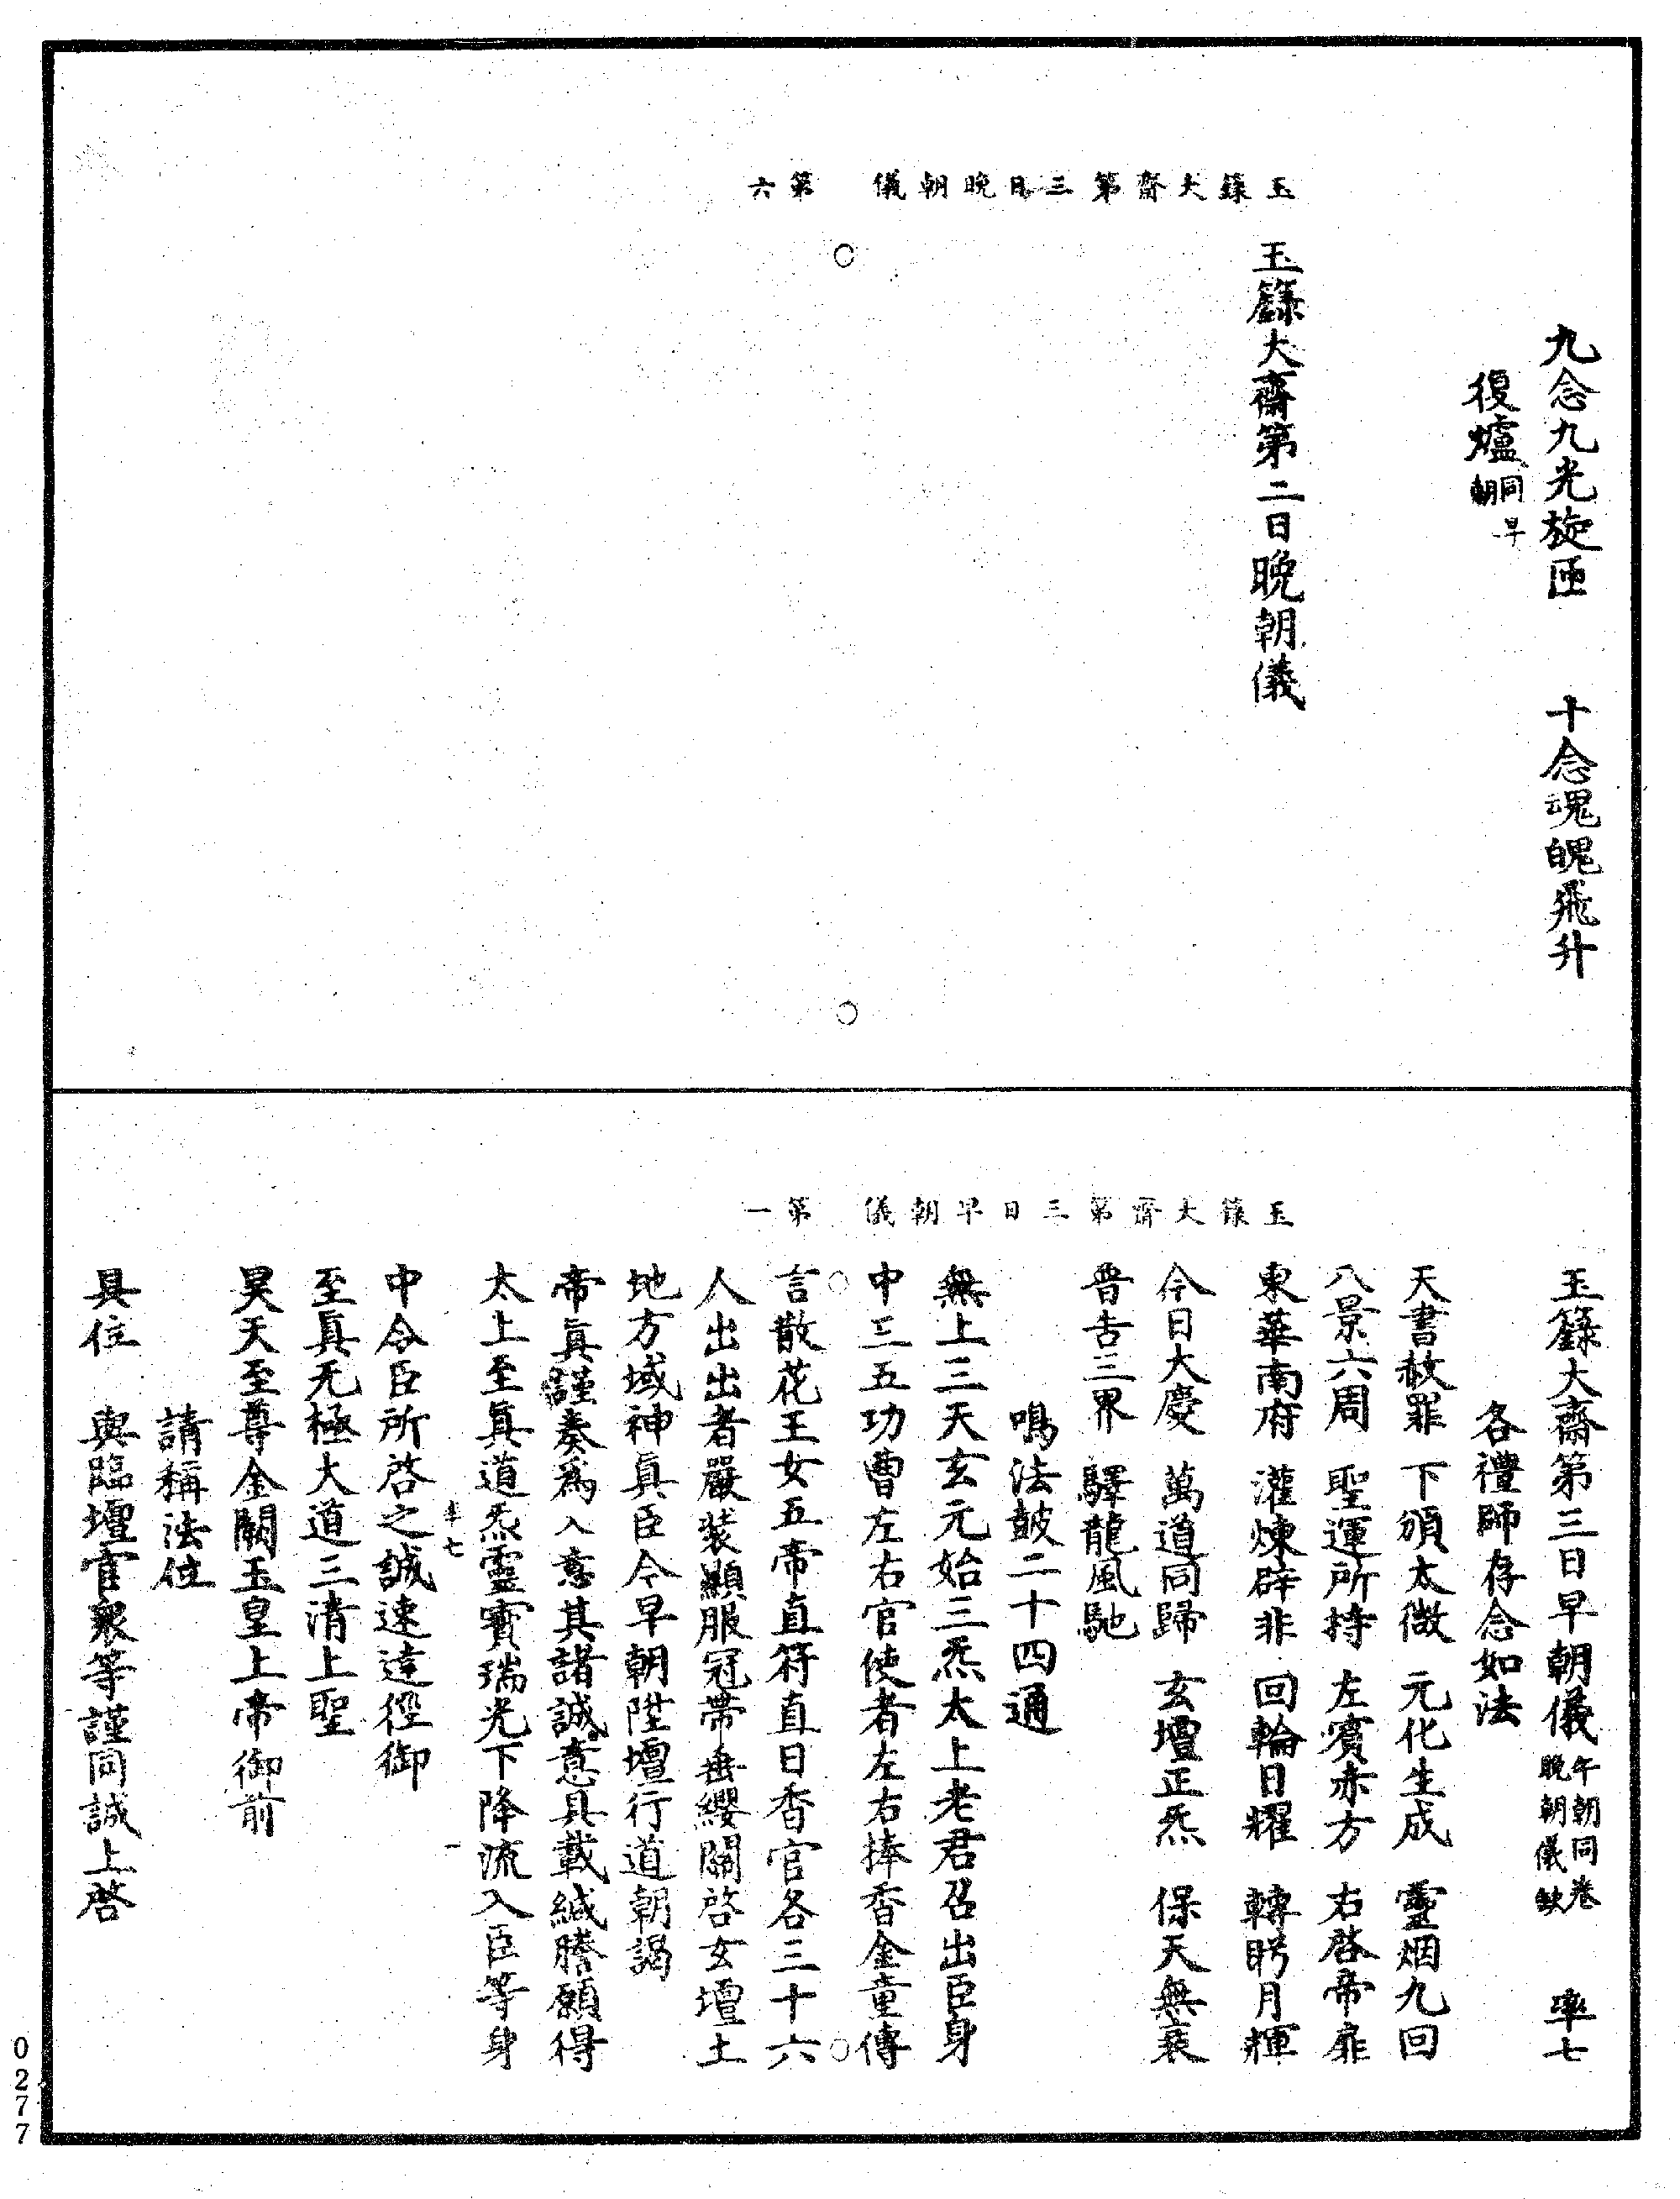 玉籙大齋第三日晚朝儀　第六
九念九光旋匝　十念魂魄飛升
復爐同早朝
玉籙大齋第二日晚朝儀
玉籙大齋第三日早朝儀　第一
玉籙大齋第三日早朝儀午朝同卷晚朝儀缺　率七
各禮師存念如法
天書赦罪　下頒太微　元化生成　靈烟九回
八景六周　聖運所持　左賓赤方　右啓帝扉
東華南府　灌煉辟非　回輪日耀　轉眄月輝
今日大慶　萬道同歸　玄壇正炁　保天無衰
普告三界　驛龍風馳
鳴法鼓二十四通
無上三天玄元始三炁太上老君召出臣身
中三五功曹左右官使者左右捧香金童傳
言散花玉女五帝直符直日香官各三十六
人出出者嚴裝顯服冠帶垂纓關啓玄壇土
地方域神真臣今早朝陞壇行道朝謁
帝真謹奏爲入意其諸誠意具載緘謄願得
太上至真道炁靈寶瑞光下降流入臣等身
率七　一
中令臣所啓之誠速達徑御
至真无極大道三清上聖
昊天至尊金闕玉皇上帝御前
請稱法位
具位　與臨壇官衆等謹同誠上啓
0277